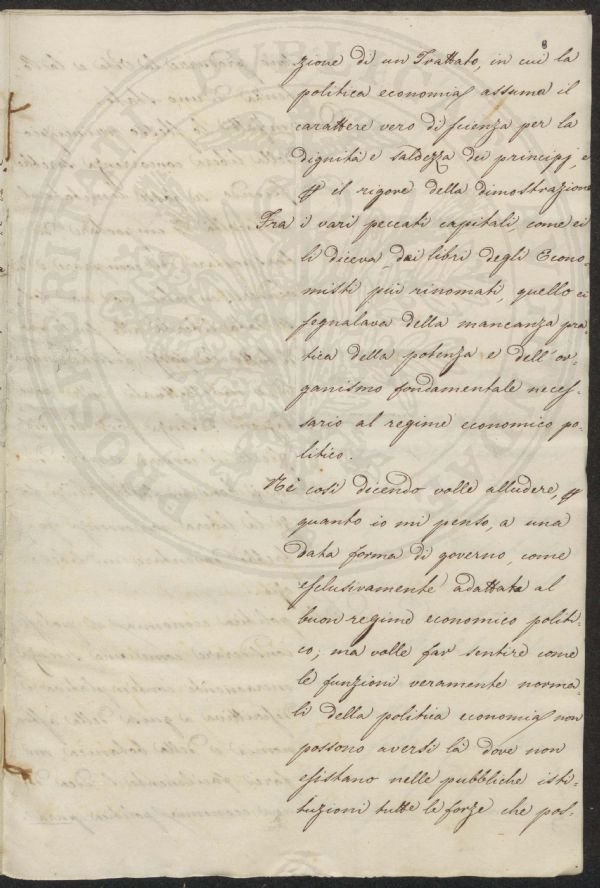 8
zione di un Trattato, in cui la
politica economia assuma il
carattere vero di scienza per la
dignità e saldezza dei principj, e
p il rigore della dimostrazione
Tra i vari peccati capitali come ei
li diceva, dei libri degli Econo-
misti più rinomati, quello ei
segnalava della mancanza pra-
tica della potenza e dell'or-
ganismo fondamentale neces-
sario al regime economico po-
litico.
Nè così dicendo volle alludere, p
quanto io mi penso, a una
data forma di governo, come
esclusivamente adattata al
buon regime economico politi-
co; ma volle far sentire come
le funzioni veramente norma-
li della politica economia non
possono aversi là dove non
esistano nelle pubbliche isti-
tuzioni tutte le forze che pos-